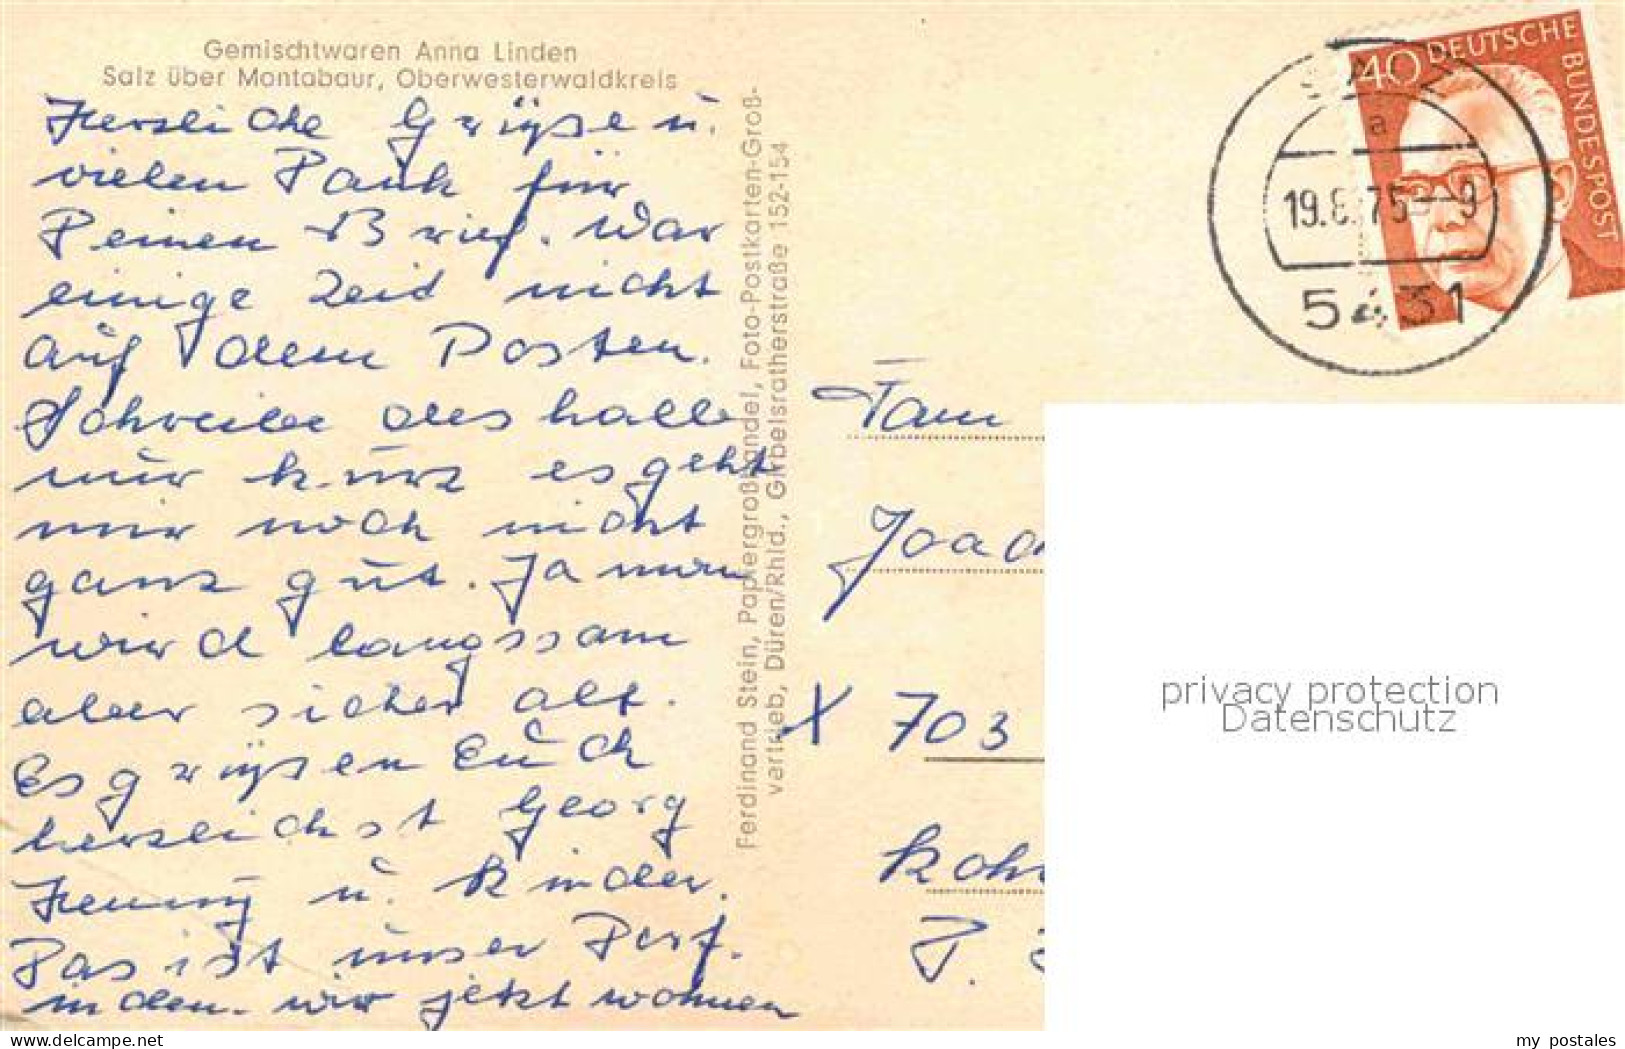 Gemischtwaren Anna Linden
Salz über Montabaur, Oberwesterwaldkreis
Herzliche Grüße u.
vielen Dank für
Deinen Brief. War
einige Zeit nicht
auf dem Posten.
Schreibe deshalb
nur kurz es geht
mir noch nicht
ganz gut. Ja man
wird langssam
aber sicher alt.
Es grüßen Euch
herzlichst Georg
Henung u. Kinder.
Das ist unser Dorf.
in dem wir jetzt wohnen
Ferdinand Stein, Papiergroßhandel, Foto-Postkarten-Groß-
vertrieb, Düren/Rhld., Girbelsratherstraße 152-154
40 DEUTSCHE BUNDESPOST
a
19.8.75-9
5431
Fam
Joach
X 703
privacy protection
Datenschutz
delcampe.net
my_postales